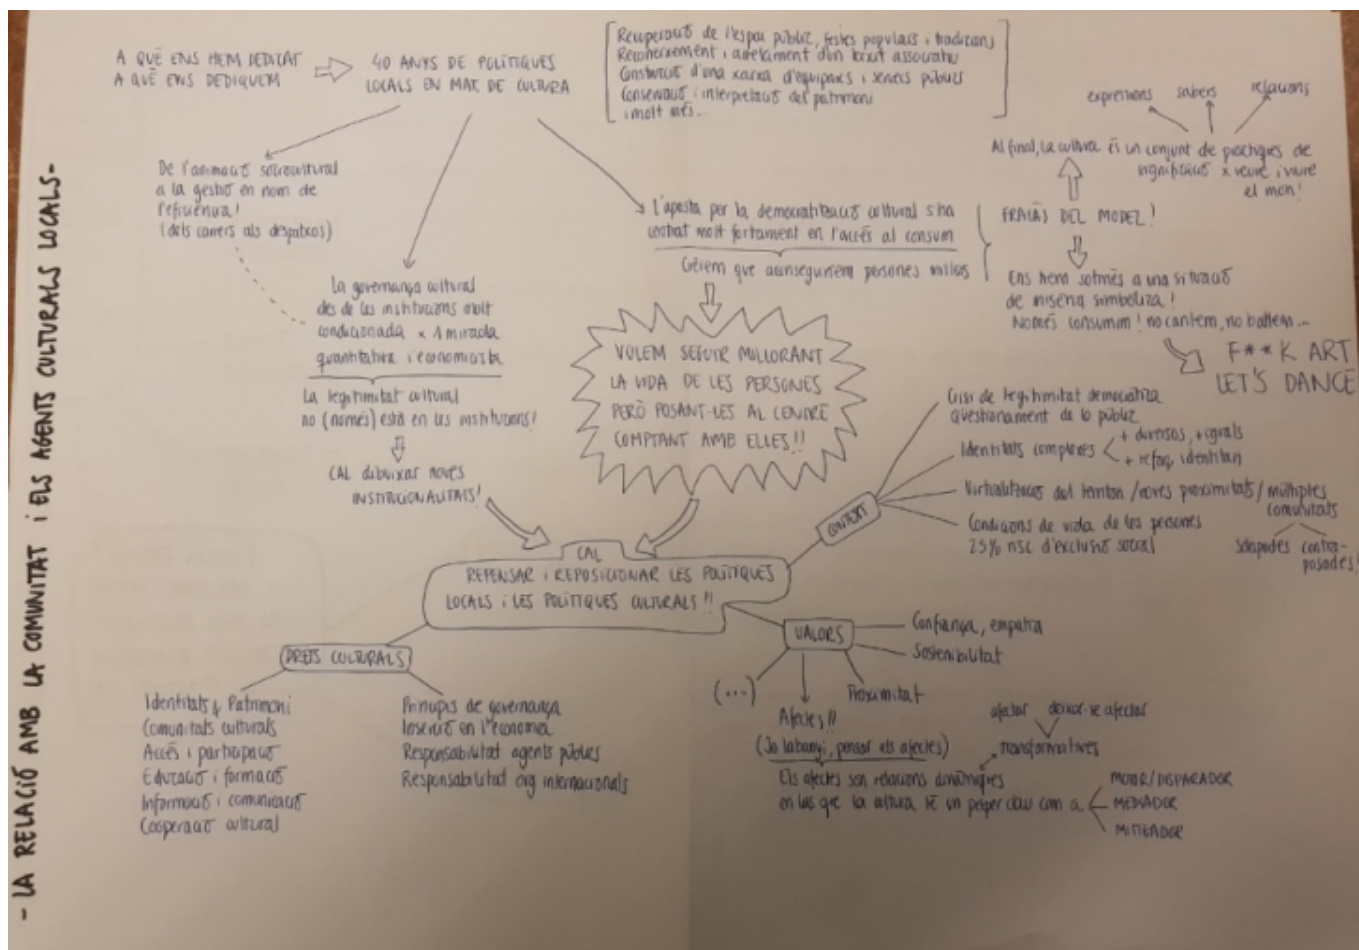 - LA RELACIÓ AMB LA COMUNITAT i ELS AGENTS CULTURALS LOCALS-
A QUÈ ENS HEM DEDICAT
A QUÈ ENS DEDIQUEM
40 ANYS DE POLÍTIQUES
LOCALS EN MAT DE CULTURA
Recuperació de l'espai públic, festes populars i tradicions
Reconeixement i adretament d'un teixit associatiu
Construcció d'una xarxa d'equipaxis i serveis públics
Conservació i interpretació del patrimoni
i molt més...
De l'animació sociocultural
a la gestió en nom de
l'eficiència!
(dels carrers als despatxos)
La governança cultural
des de les institucions molt
condicionada x 1 mirada
quantitativa i economicista
La legitimitat cultural
no (només) està en les institucions!
CAL dibuixar noves
INSTITUCIONALITATS!
L'aposta per la democratització cultural s'ha
centrat molt fortament en l'accés al consum
Crèiem que aconseguiríem persones millors
VOLEM SEGUIR MILLORANT
LA VIDA DE LES PERSONES
PERÒ POSANT-LES AL CENTRE
COMPTANT AMB ELLES!!
expressions sabers relacions
Al final, la cultura és un conjunt de pràctiques de
significació x veure i viure
el món!
FRACÀS DEL MODEL!
Ens hem sotmès a una situació
de misèria simbòlica!
Només consumim! no cantem, no ballem...
F**K ART
LET'S DANCE
CAL
REPENSAR i REPOSICIONAR LES POLÍTIQUES
LOCALS i LES POLÍTIQUES CULTURALS!!
CONTEXT
Crisi de legitimitat democràtica
qüestionament de lo públic
Identitats complexes
+ diversos, + iguals
+ reforç identitari
Virtualització del territori / noves proximitats / múltiples
comunitats
Solapades contra-
posades!
Condicions de vida de les persones
25% risc d'exclusió social
VALORS
Confiança, empatia
Sostenibilitat
Proximitat
(...)
Afectes!!
(Jo Labanyi, pensar els afectes)
Els afectes són relacions dinàmiques
en las que la cultura té un paper clau com a
afectar deixar-se afectar
transformatives
MOTOR/DISPARADOR
MEDIADOR
MITIGADOR
DRETS CULTURALS
Identitats, Patrimoni
Comunitats culturals
Accés i participació
Educació i formació
Informació i comunicació
Cooperació cultural
Principis de governança
Inserció en l'economia
Responsabilitat agents públics
Responsabilitat org internacionals